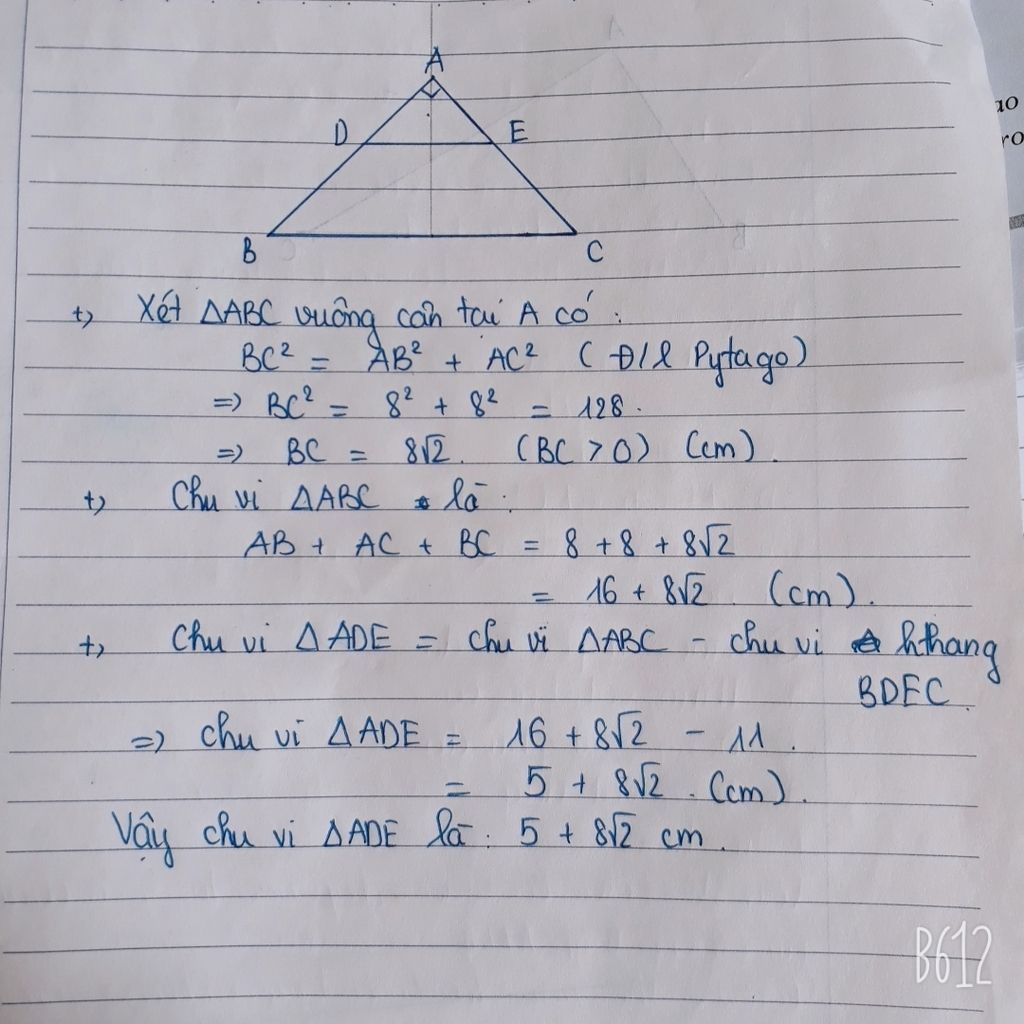 A
D
E
B
C
ao
ro
+) Xét ΔABC vuông cân tai A có:
BC² = AB² + AC² (Đ/l Pytago)
=> BC² = 8² + 8² = 128.
=> BC = 8√2. (BC > 0) (cm).
+) Chu vi ΔABC là:
AB + AC + BC = 8 + 8 + 8√2
= 16 + 8√2 (cm).
+) Chu vi ΔADE = chu vi ΔABC - chu vi hthang
BDEC.
=> chu vi ΔADE = 16 + 8√2 - 11.
= 5 + 8√2. (cm).
Vậy chu vi ΔADE là: 5 + 8√2 cm.
B612